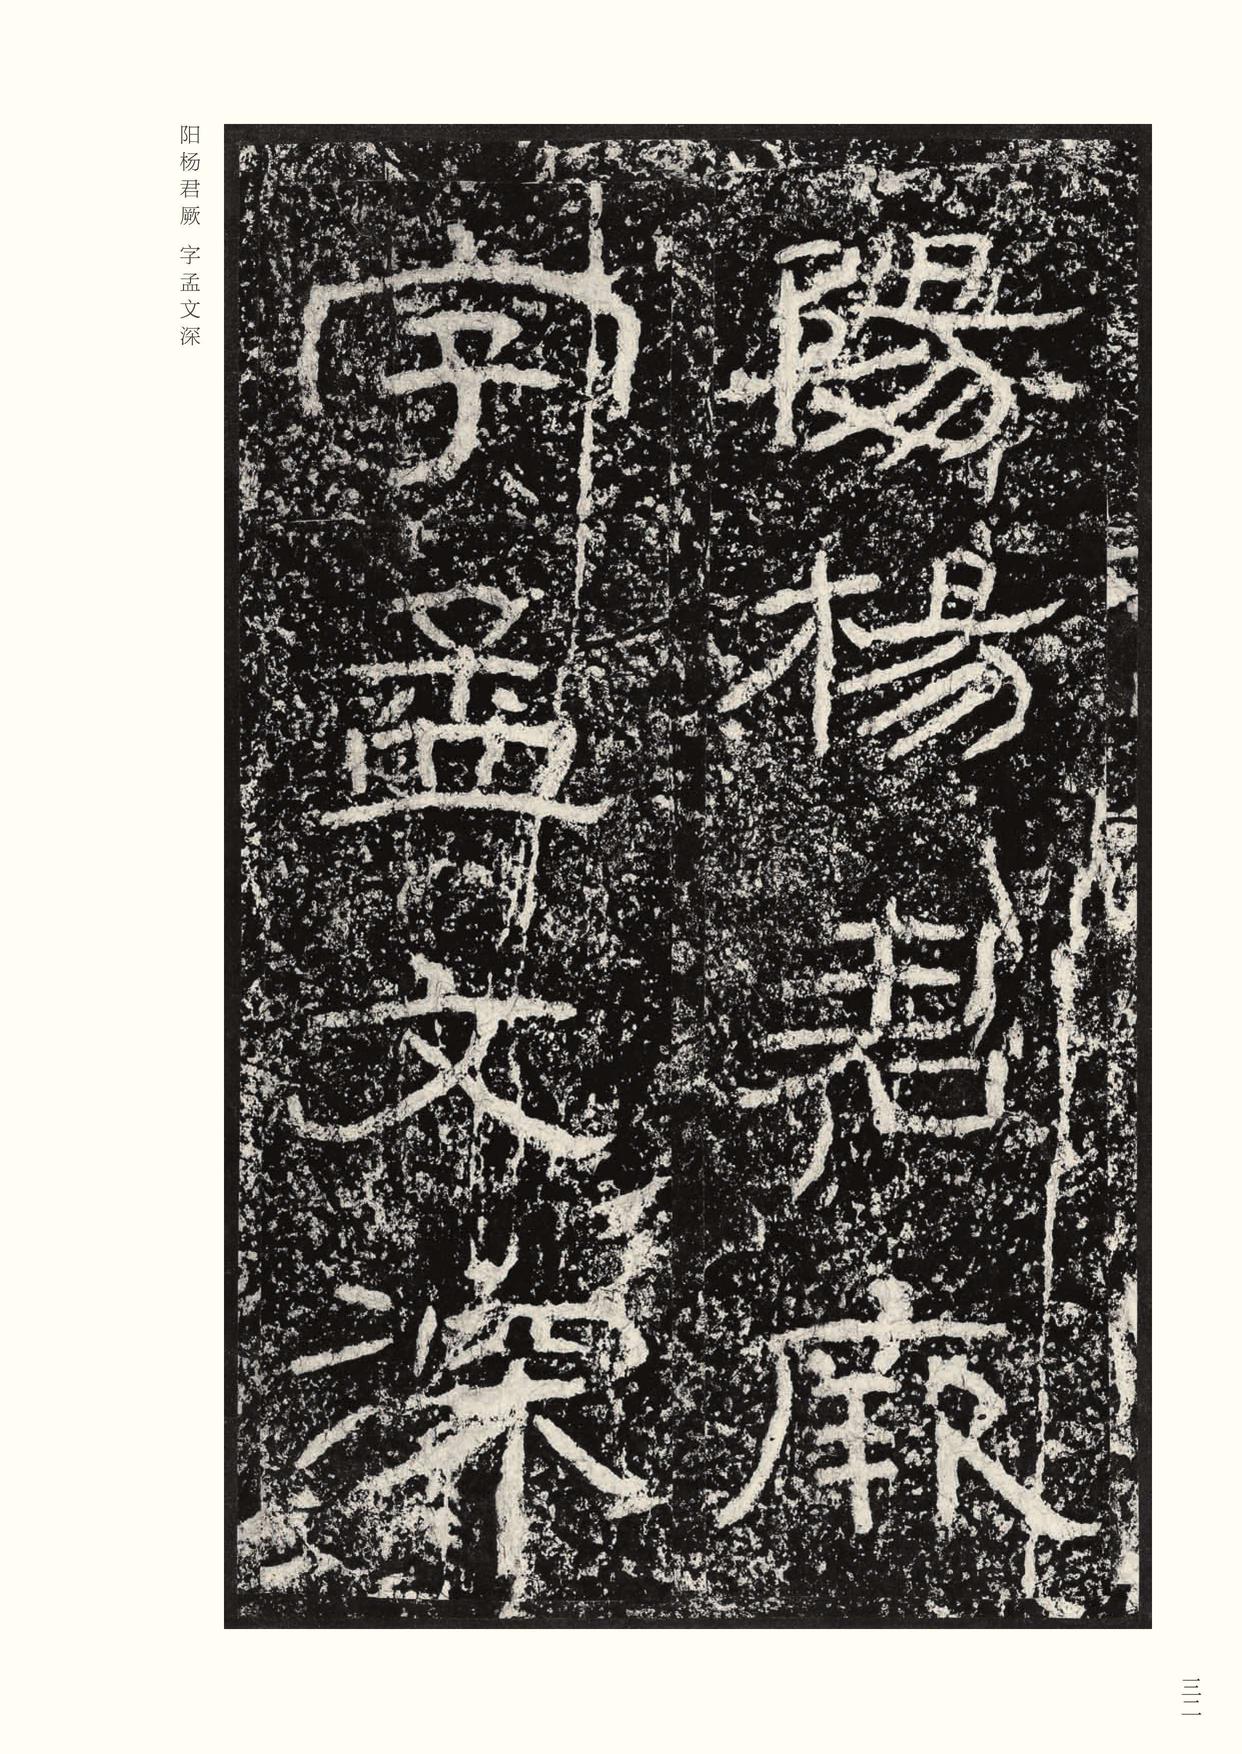 陽楊君厥
字孟文深
阳杨君厥 字孟文深
三二